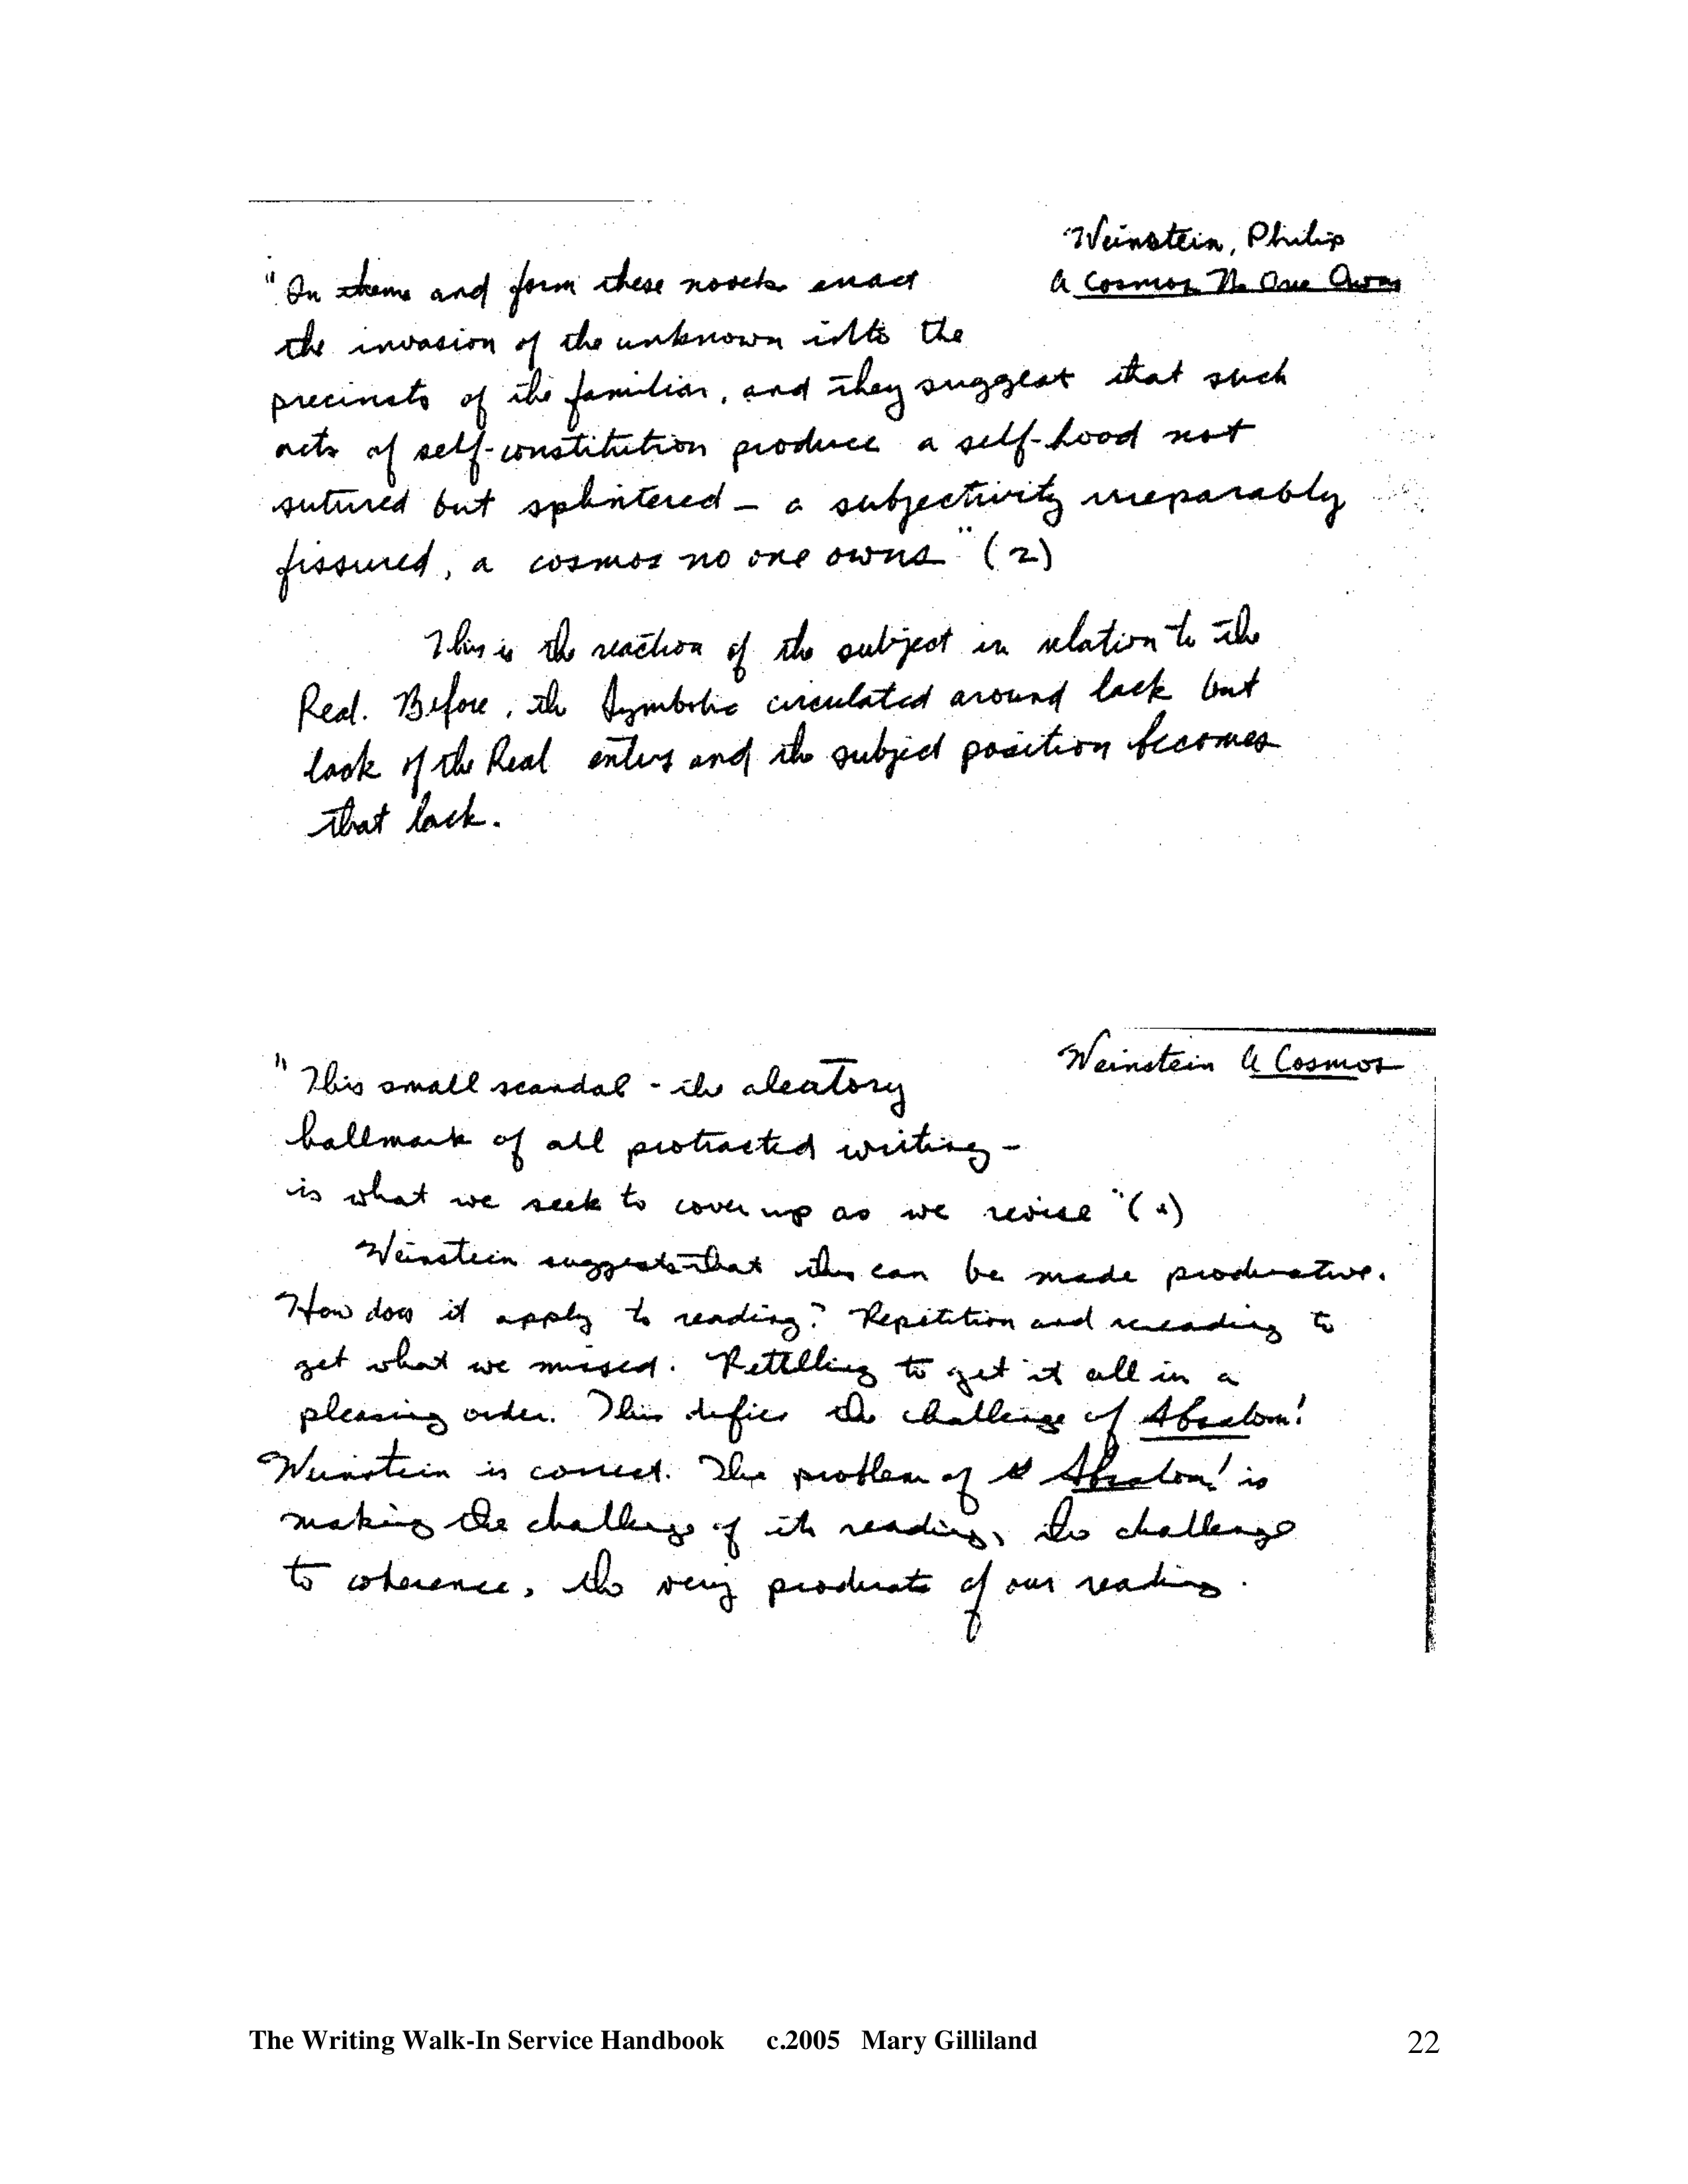 Weinstein, Philip
A Cosmos No One Owns
"In theme and form these novels enact
the invasion of the unknown into the
precincts of the familiar, and they suggest that such
acts of self-constitution produce a self-hood not
sutured but splintered – a subjectivity irreparably
fissured, a cosmos no one owns" (2)
This is the reaction of the subject in relation to the
Real. Before, the Symbolic circulated around lack but
lack of the Real enters and the subject position becomes
that lack.
Weinstein A Cosmos
"This small scandal - the aleatory
hallmark of all protracted writing -
is what we seek to cover up as we revise"
Weinstein suggests that this can be made productive.
How does it apply to reading? Repetition and rereading to
get what we missed. Retelling to get it all in a
pleasing order. This defies the challenge of Absalom!
Weinstein is correct. The problem of Absalom! is
making the challenge of its reading, the challenge
to coherence, the very products of our reading.
The Writing Walk-In Service Handbook c.2005 Mary Gilliland 22